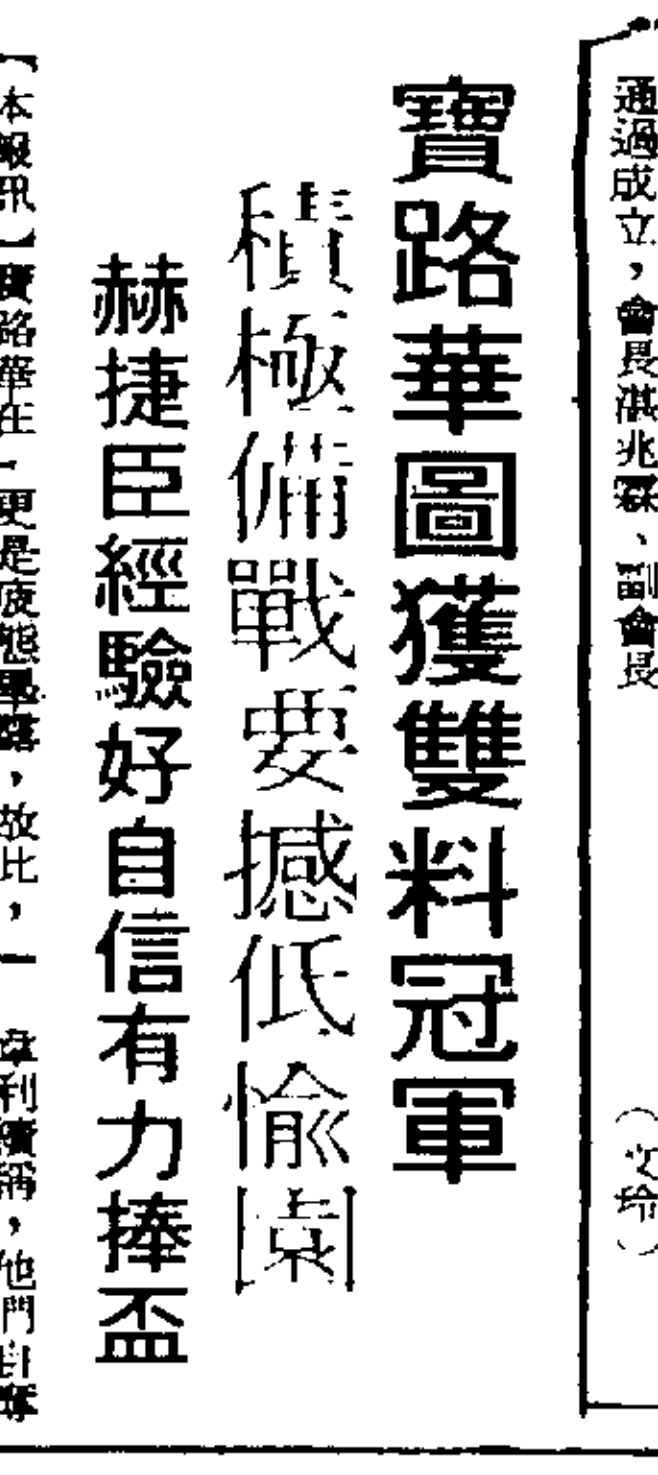 通過成立，會長湛兆霖、副會長
（文玲）
寶路華圖獲雙料冠軍
積極備戰要撼低愉園
赫捷臣經驗好自信有力捧盃
【本報訊】寶路華在一更是疲態畢露，故比，一
利續稱，他們